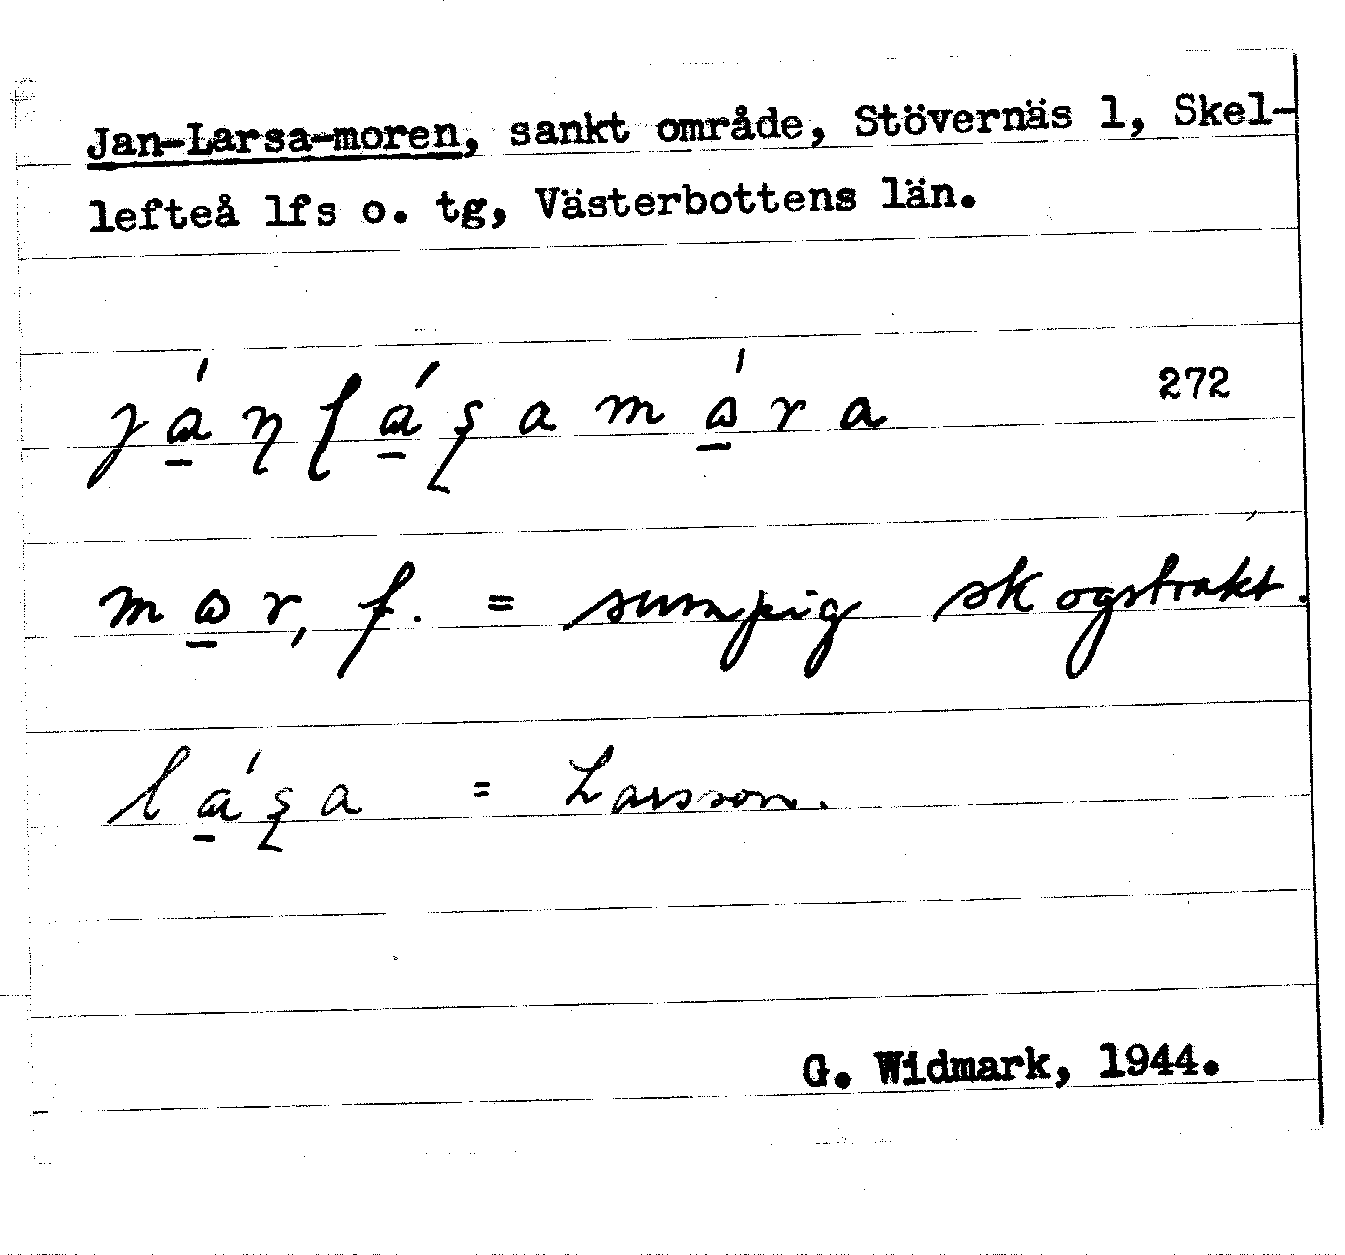 Jan-Larsa-moren, sankt område, Stövernäs l, Skel-
lefteå lfs o. tg, Västerbottens län.
272
f. = sumpig skogstrakt.
= Larsson.
G. Widmark, 1944.